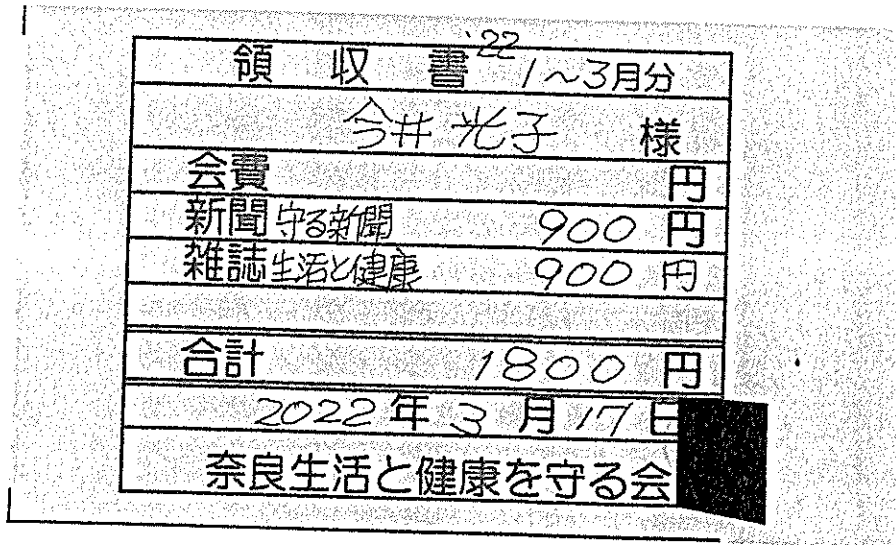 領収書 '22 1～3月分
今井光子 様
会費 円
新聞 守る新聞 900 円
雑誌 生活と健康 900 円
合計 1800 円
2022年3月17日
奈良生活と健康を守る会